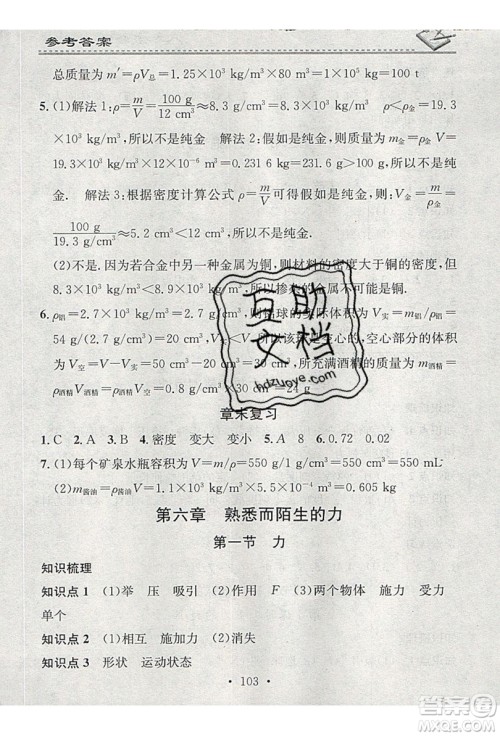 参考答案
总质量为 m′=ρV总=1.25×10³ kg/m³×80 m³=1×10⁵ kg=100 t
5. (1)解法1:ρ=m/V=100 g/12 cm³≈8.3 g/cm³=8.3×10³ kg/m³ ρ<ρ金=19.3
×10³ kg/m³,所以不是纯金 解法2:假如是纯金,则质量为 m金=ρ金V=
19.3×10³ kg/m³×12×10⁻⁶ m³=0.231 6 kg=231.6 g>100 g,所以不是纯
金. 解法3:根据密度计算公式 ρ=m/V可得假如是纯金,则体积应有 V金=m/ρ金=
100 g/19.3 g/cm³≈5.2 cm³<12 cm³,所以不是纯金.
(2)不是.因为若合金中另一种金属为铜,则材料的密度大于铜的密度,但
8.3×10³ kg/m³<8.9×10³ kg/m³,所以掺杂的金属不是铜.
6. ρ铝=2.7×10³ kg/m³=2.7 g/cm³,铝球的实际体积为 V实=m/ρ铝=
54 g/(2.7 g/cm³)=20 cm³<30 cm³,所以该球是空心的,空心部分的体积
为 V空=V−V实=30 cm³−20 cm³=10 cm³,所充满酒精的质量为 m酒精=
ρ酒精V酒精=ρ酒精V空=0.8 g/cm³×10 cm³=8 g
章末复习
1. C 2. A 3. B 4. 密度 变大 变小 5. A 8 6. 0.72 0.02
7. (1)每个矿泉水瓶容积为 V=m/ρ=550 g/1 g/cm³=550 cm³=550 mL
(2)m酱油=ρ酱油V=1.1 g/cm³×550 cm³=605 g=0.605 kg
第六章 熟悉而陌生的力
第一节 力
知识梳理
知识点1 (1)举 压 吸引 (2)作用 F (3)两个物体 施力 受力
单个
知识点2 (1)相互 施加力 (2)消失
知识点3 形状 运动状态
·103·
互助
文档
hdzuoye.com
作业帮